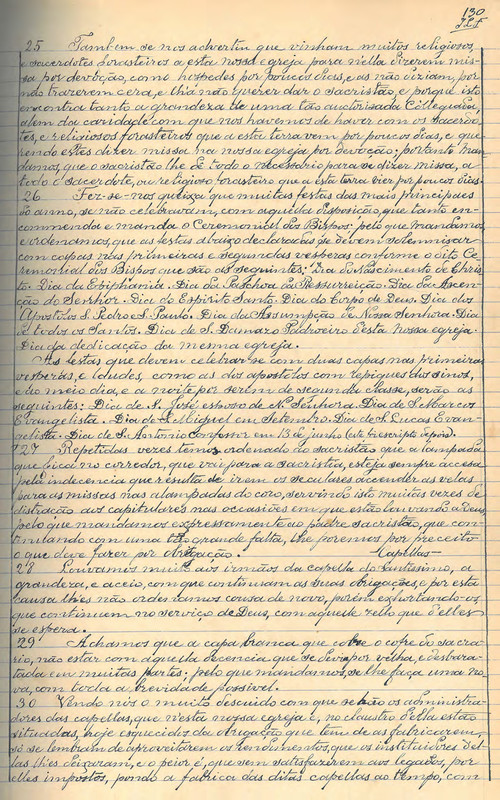 130
25 Tambem se nos advertiu que vinham muitos religiosos,
e sacerdotes forasteiros a esta nossa egreja para nella dizerem mis-
sa por devoção, como hospedes por poucos dias, e as não diriam, por
não trazerem cera, e lh'a não querer dar o sacristão, e porque isto
encontra tanto a grandeza de uma tão auctorisada Collegiada,
alem da caridade com que nos havemos de haver com os sacerdo-
tes, e religiosos forasteiros que a esta terra vem por poucos dias, e que
rendo estes dizer missa na nossa egreja por devoção; portanto man-
damos, que o sacristão lhe dê todo o necessario para se dizer missa, a
todo o sacerdote, ou religioso forasteiro que a esta terra vier por poucos dias.
26 Fez-se-nos queixa que muitas festas das mais principaes
do anno, se não celebravam, com aquella disposição, que tanto en-
commenda e manda o Ceremonial dos Bispos: pelo que mandamos,
e ordenamos, que as festas abaixo declaradas se devem solemnisar
com capas nas primeiras e segundas vesperas conforme o dito Ce-
remonial dos Bispos que são as seguintes: Dia do Nascimento de Chris-
to. Dia da Epiphania. Dia da Paschoa da Ressurreição. Dia da Ascen-
ção do Senhor. Dia do Espirito Santo. Dia do Corpo de Deus. Dia dos
Apostolos S. Pedro e S. Paulo. Dia da Assumpção de Nossa Senhora. Dia
de todos os Santos. Dia de S. Damaso Padroeiro d'esta nossa egreja.
Dia da dedicação da mesma egreja.
As festas que devem celebrar-se com duas capas nas primeiras
vesperas, e laudes, como as dos apostolos com repiques dos sinos,
e do meio dia, e a noite por serem de segunda classe, serão as
seguintes: Dia de S. José esposo de Nª Senhora. Dia de S. Marcos
Evangelista. Dia de S. Miguel em Setembro. Dia de S. Lucas Evan-
gelista. Dia de S. Antonio Confessor em 13 de junho
127 Repetidas vezes temos ordenado ao sacristão que a lampada
que fica no corredor, que vai para a sacristia, esteja sempre accesa
pela indecencia que resulta de irem os seculares accender as velas
para as missas nas alampadas do coro, servindo isto muitas vezes de
distração aos capitulares nas occasiões em que estão louvando a Deus,
pelo que mandamos expressamente ao padre sacristão, que con-
tinuando com uma tão grande falta, lhe poremos por preceito
o que deve fazer por obrigação. Capellas
28 Louvamos muito aos irmãos da capella do Santissimo, a
grandeza, e aceio, com que continuam as suas obrigações, e por esta
causa lhes não ordenamos cousa de novo, porem exhortando-os
que continuem no serviço de Deus, com aquelle zello que d'elles
se espera.
29 Achamos que a capa branca que cobre o cofre do sacra-
rio, não estar com aquella decencia que se deve, por velha, e desbara-
tada em muitas partes; pelo que mandamos, se lhe faça uma no-
va, com toda a brevidade possivel.
30 Vendo nós o muito descuido com que se hão os administra-
dores das capellas, que n'esta nossa egreja e, no claustro d'ella estão
situadas, hoje esquecidos da obrigação que têm de as fabricarem,
só se lembram de aproveitarem os rendimentos, que os instituidores del-
las lhes deixaram, e o peior é, que sem satisfazerem aos legados, por
elles impostos, pondo a fabrica das ditas capellas ao tempo, com